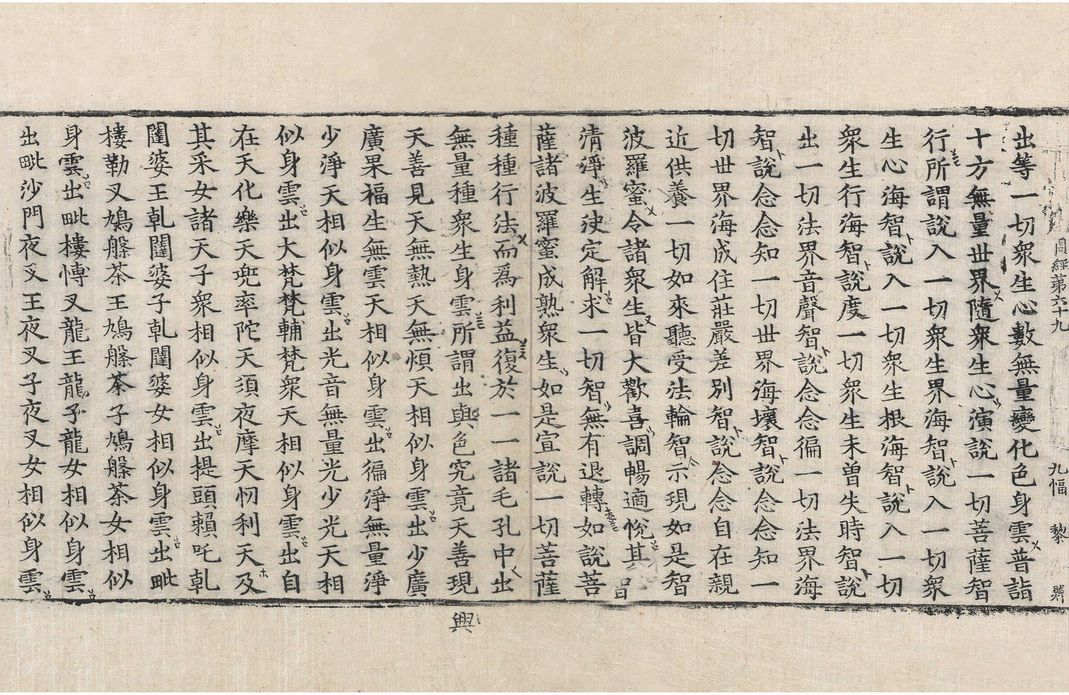 目經第六十九
九幅
黎
出等一切衆生心數無量變化色身雲普詣
十方無量世界隨衆生心演說一切菩薩智
行所謂說入一切衆生界海智說入一切衆
生心海智說入一切衆生根海智說入一切
衆生行海智說度一切衆生未曾失時智說
出一切法界音聲智說念念徧一切法界海
智說念念知一切世界海壞智說念念知一
切世界海成住莊嚴差別智說念念自在親
近供養一切如來聽受法輪智示現如是智
波羅蜜令諸衆生皆大歡喜調暢適悅其
清淨生决定解求一切智無有退轉如說菩
薩諸波羅蜜成熟衆生如是宣說一切菩薩
種種行法而爲利益復於一一諸毛孔中出
無量種衆生身雲所謂出與色究竟天善現
天善見天無熱天無煩天相似身雲出少廣
廣果福生無雲天相似身雲出徧淨無量淨
少淨天相似身雲出光音無量光少光天相
似身雲出大梵梵輔梵衆天相似身雲出自
在天化樂天兜率陀天須夜摩天忉利天及
其采女諸天子衆相似身雲出提頭賴吒乹
闥婆王乹闥婆子乹闥婆女相似身雲出毗
樓勒叉鳩槃茶王鳩槃茶子鳩槃茶女相似
身雲出毗樓愽叉龍王龍子龍女相似身雲
出毗沙門夜叉王夜叉子夜叉女相似身雲